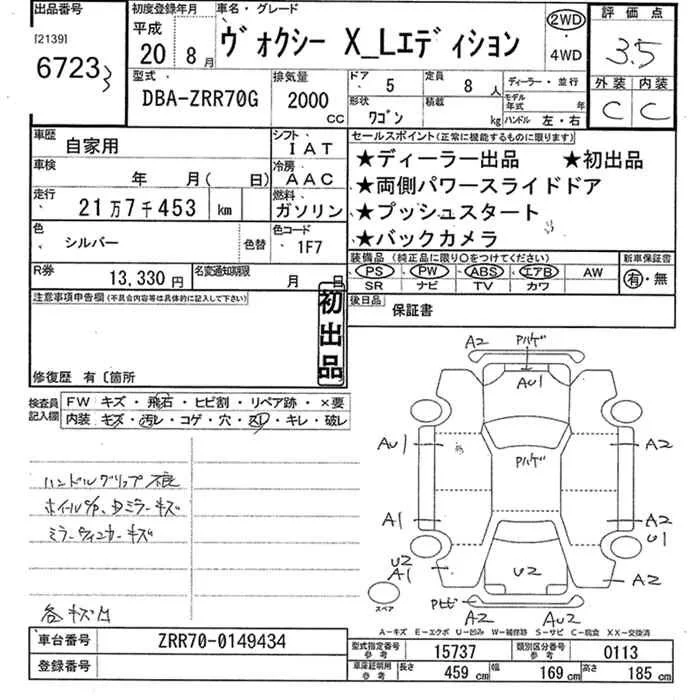 出品番号
[2139]
67233
初度登録年月
平成
20 8月
車名・グレード
ヴォクシー X_Lエディション
2WD
・
4WD
評価点
3.5
外装 内装
C C
型式
DBA-ZRR70G
排気量
2000
CC
ドア 5
定員 8人
ディーラー・並行
形状 ワゴン
積載 kg
モデル年式 年
ハンドル 左・右
車歴 自家用
シフト IAT
車検 年 月( 日)
冷房 AAC
走行 21万7千453 km
燃料 ガソリン
色 シルバー
色替
色コード 1F7
R券 13,330円
名変通知期限 月 日
セールスポイント(正常に機能するものに限ります)
★ディーラー出品 ★初出品
★両側パワースライドドア
★プッシュスタート
★バックカメラ
装備品(純正品に限り〇をつけてください)
PS PW ABS エアB AW
SR ナビ TV カワ
新車保証書
有・無
後日品 保証書
注意事項申告欄(不具合内容等は具体的に記入して下さい)
初出品
修復歴 有〔箇所
検査員記入欄
FW キズ・飛石・ヒビ割・リペア跡・×要
内装 キズ・汚レ・コゲ・穴・スレ・キレ・破レ
ハンドルグリップ不良
ミラーウィンカーキズ
A2 Pハゲ
AU1
AU1 Pハゲ A2
A1 A2
U1
U2
A1 U2 A2
スペア
Pヒビ
A2 AU2
A-キズ E-エクボ U-凹み W-補修跡 S-サビ C-腐食 XX-交換済
車台番号 ZRR70-0149434
登録番号
型式指定番号 参考 15737
類別区分番号 参考 0113
車庫証明用 参考 長さ 459 cm 幅 169 cm 高さ 185 cm